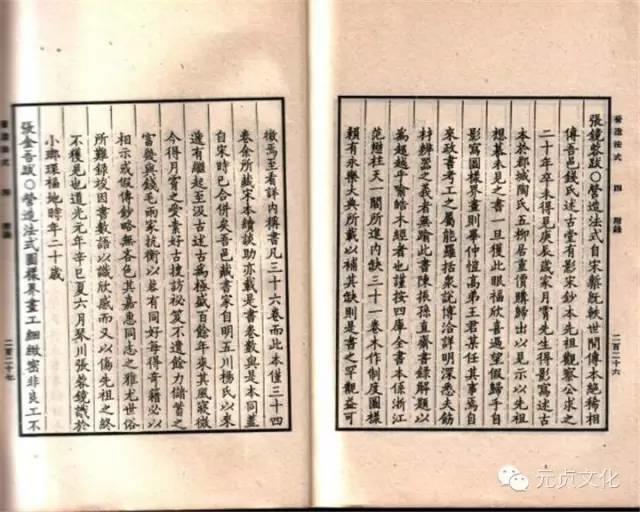 營造法式 四 附錄 二百二十六
張鏡蓉跋○營造法式自宋槧既軼世間傳本絕稀相
傳吾邑錢氏述古堂有影宋鈔本先祖觀察公求之
二十年卒未得見庚辰歲家月霄先生得影寫述古
本於郡城陶氏五柳居重價購歸出以見示以先祖
想慕未見之書一旦獲此眼福欣喜過望假歸手自
影寫圖樣界畫則畢仲愷高弟王君某任其事焉自
來政書考工之屬能羅括衆說博洽詳明深悉夫飭
材辨器之義者無踰此書陳振孫直齋書錄解題以
為超越乎喻皓木經者也謹按四庫全書本係浙江
范懋柱天一閣所進內缺三十一卷木作制度圖樣
賴有永樂大典所載以補其缺則是書之罕觀益可
徵焉至看詳內稱書凡三十六卷而此本僅三十四
卷余所藏宋本續談助亦載是書卷數與是本同蓋
自宋時已合併矣吾邑藏書家自明五川楊氏以來
遞有繼起至汲古述古為極盛百餘年來其風寢微
今得月霄之愛素好古搜訪祕笈不遺餘力儲蓄之
富幾與錢毛兩家抗衡以蓉有同好每得奇籍必以
相示或假傳鈔略無吝色其嘉惠同志之雅尤世俗
所難錄竣因書數語以識欣感而又以傷先祖之終
不獲見也道光元年辛巳夏六月琴川張蓉鏡識於
小嫏嬛福地時年二十歲
張金吾跋○營造法式圖樣界畫工細緻密非良工不
營造法式 四 附錄 二百二十七
元贞文化